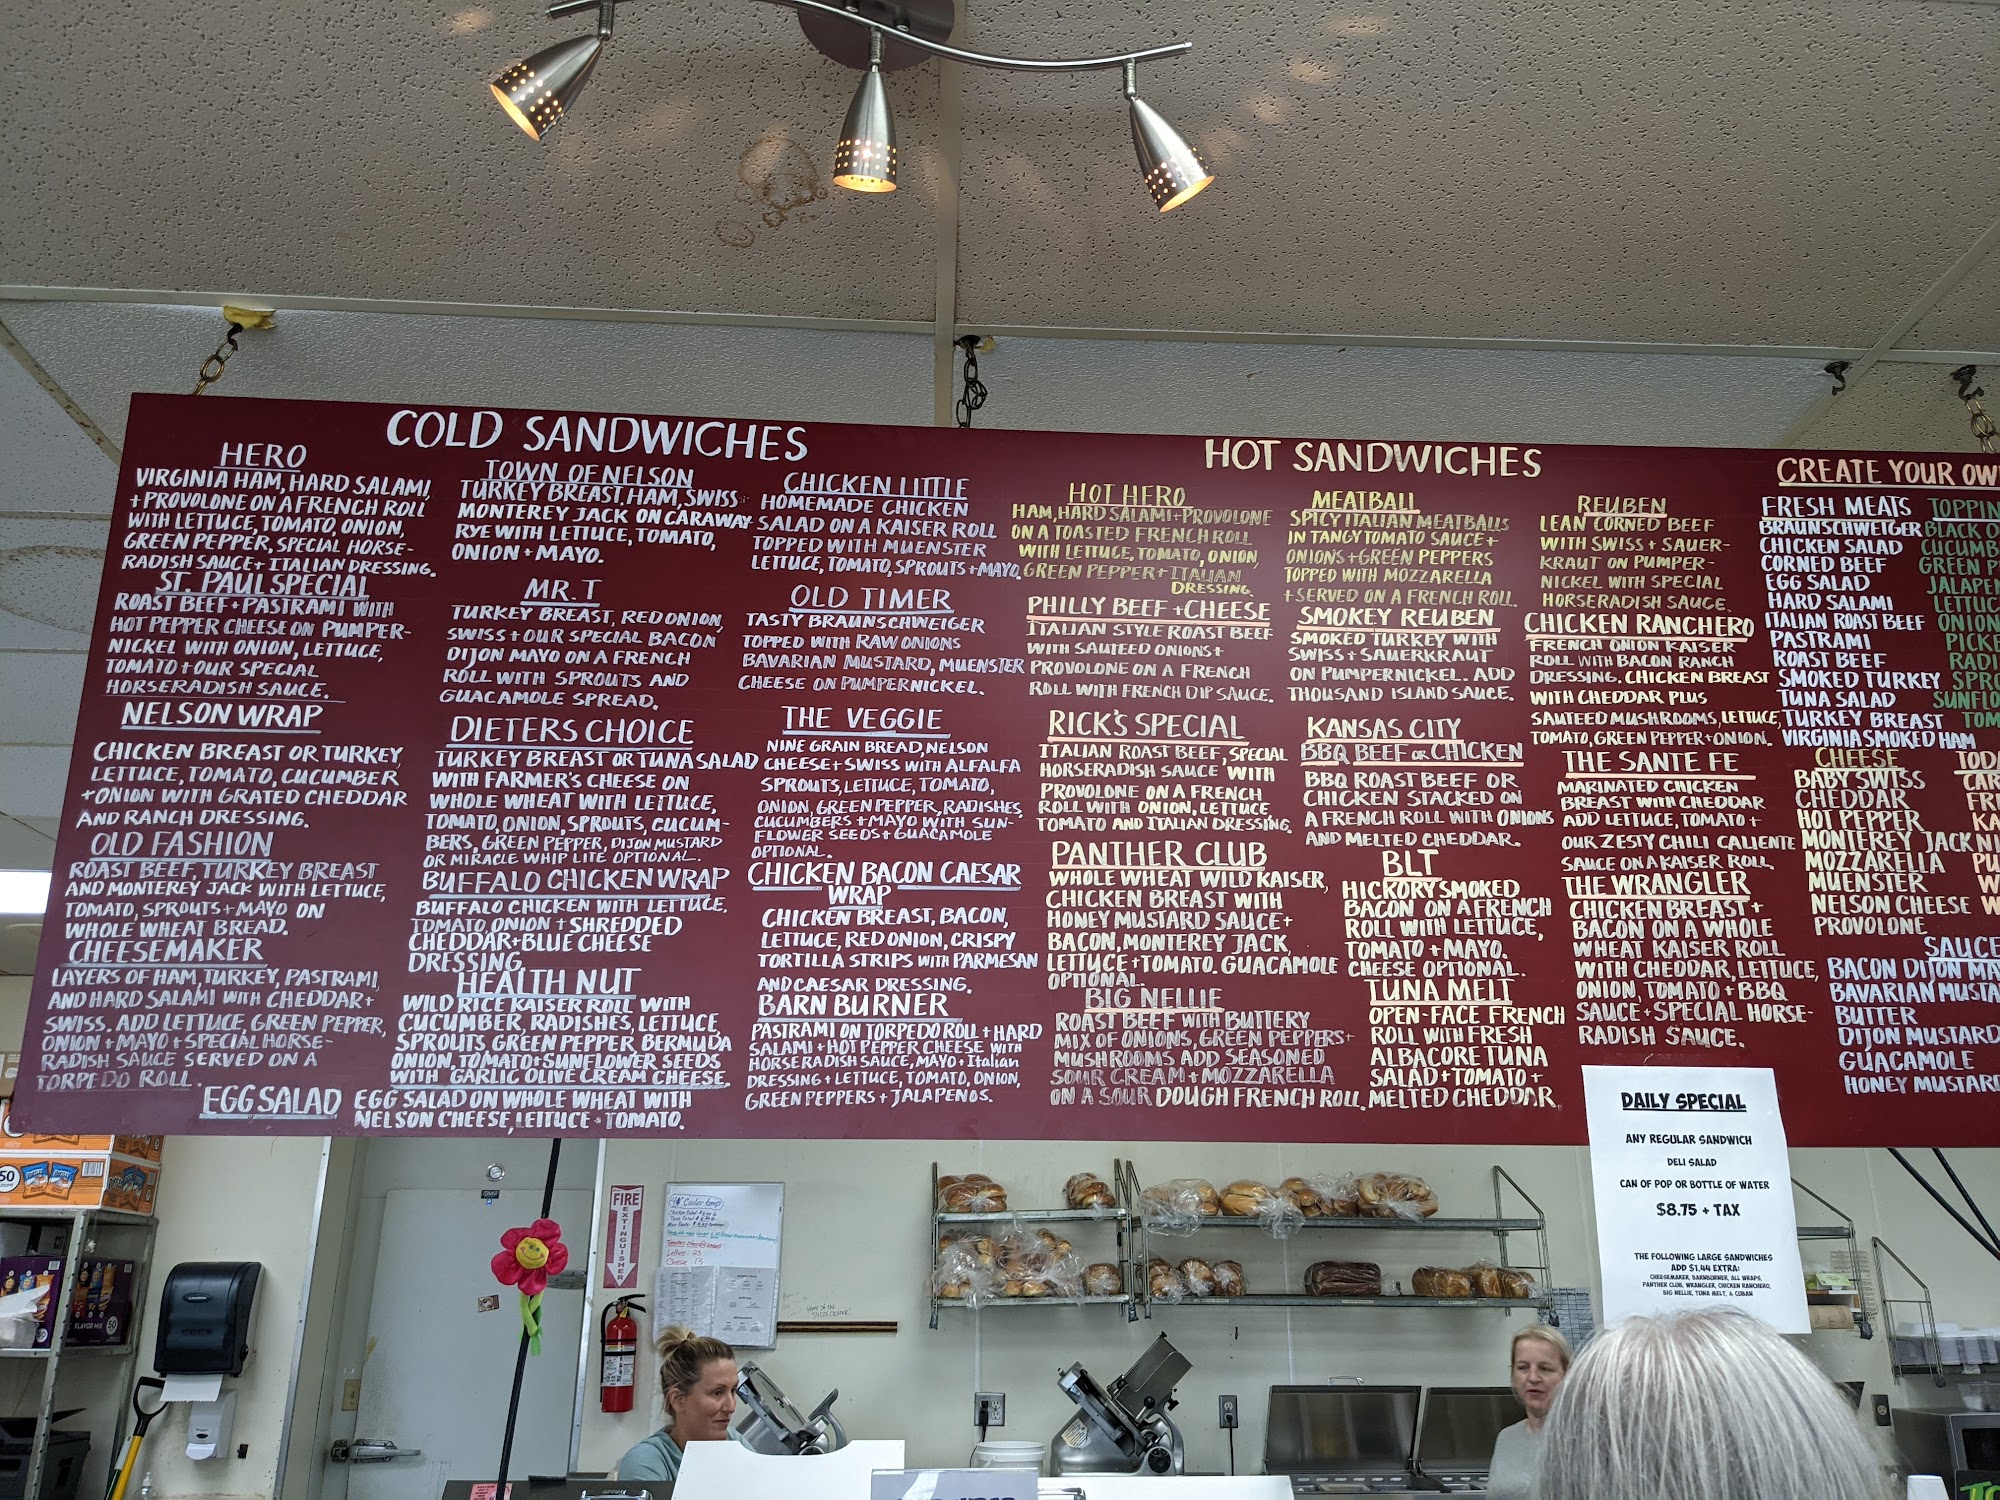 COLD SANDWICHES
HERO
VIRGINIA HAM, HARD SALAMI,
+ PROVOLONE ON A FRENCH ROLL
WITH LETTUCE, TOMATO, ONION,
GREEN PEPPER, SPECIAL HORSE-
RADISH SAUCE + ITALIAN DRESSING.
ST. PAUL SPECIAL
ROAST BEEF + PASTRAMI WITH
HOT PEPPER CHEESE ON PUMPER-
NICKEL WITH ONION, LETTUCE,
TOMATO + OUR SPECIAL
HORSERADISH SAUCE.
NELSON WRAP
CHICKEN BREAST OR TURKEY,
LETTUCE, TOMATO, CUCUMBER
+ ONION WITH GRATED CHEDDAR
AND RANCH DRESSING.
OLD FASHION
ROAST BEEF, TURKEY BREAST
AND MONTEREY JACK WITH LETTUCE,
TOMATO, SPROUTS + MAYO ON
WHOLE WHEAT BREAD.
CHEESEMAKER
LAYERS OF HAM, TURKEY, PASTRAMI,
AND HARD SALAMI WITH CHEDDAR +
SWISS. ADD LETTUCE, GREEN PEPPER,
ONION + MAYO + SPECIAL HORSE-
RADISH SAUCE SERVED ON A
TORPEDO ROLL.
EGG SALAD
EGG SALAD ON WHOLE WHEAT WITH
NELSON CHEESE, LETTUCE + TOMATO.
TOWN OF NELSON
TURKEY BREAST, HAM, SWISS
MONTEREY JACK ON CARAWAY
RYE WITH LETTUCE, TOMATO,
ONION + MAYO.
MR. T
TURKEY BREAST, RED ONION,
SWISS + OUR SPECIAL BACON
DIJON MAYO ON A FRENCH
ROLL WITH SPROUTS AND
GUACAMOLE SPREAD.
DIETERS CHOICE
TURKEY BREAST OR TUNA SALAD
WITH FARMER'S CHEESE ON
WHOLE WHEAT WITH LETTUCE,
TOMATO, ONION, SPROUTS, CUCUM-
BERS, GREEN PEPPER, DIJON MUSTARD
OR MIRACLE WHIP LITE OPTIONAL.
BUFFALO CHICKEN WRAP
BUFFALO CHICKEN WITH LETTUCE,
TOMATO, ONION + SHREDDED
CHEDDAR + BLUE CHEESE
DRESSING
HEALTH NUT
WILD RICE KAISER ROLL WITH
CUCUMBER, RADISHES, LETTUCE,
SPROUTS, GREEN PEPPER, BERMUDA
ONION, TOMATO + SUNFLOWER SEEDS
WITH GARLIC OLIVE CREAM CHEESE.
CHICKEN LITTLE
HOMEMADE CHICKEN
SALAD ON A KAISER ROLL
TOPPED WITH MUENSTER
LETTUCE, TOMATO, SPROUTS + MAYO.
OLD TIMER
TASTY BRAUNSCHWEIGER
TOPPED WITH RAW ONIONS
BAVARIAN MUSTARD, MUENSTER
CHEESE ON PUMPERNICKEL.
THE VEGGIE
NINE GRAIN BREAD, NELSON
CHEESE + SWISS WITH ALFALFA
SPROUTS, LETTUCE, TOMATO,
ONION, GREEN PEPPER, RADISHES,
CUCUMBERS + MAYO WITH SUN-
FLOWER SEEDS + GUACAMOLE
OPTIONAL.
CHICKEN BACON CAESAR
WRAP
CHICKEN BREAST, BACON,
LETTUCE, RED ONION, CRISPY
TORTILLA STRIPS WITH PARMESAN
AND CAESAR DRESSING.
BARN BURNER
PASTRAMI ON TORPEDO ROLL + HARD
SALAMI + HOT PEPPER CHEESE WITH
HORSERADISH SAUCE, MAYO + Italian
DRESSING + LETTUCE, TOMATO, ONION,
GREEN PEPPERS + JALAPENOS.
HOT SANDWICHES
HOT HERO
HAM, HARD SALAMI + PROVOLONE
ON A TOASTED FRENCH ROLL
WITH LETTUCE, TOMATO, ONION,
GREEN PEPPER + ITALIAN
DRESSING.
PHILLY BEEF + CHEESE
ITALIAN STYLE ROAST BEEF
WITH SAUTEED ONIONS +
PROVOLONE ON A FRENCH
ROLL WITH FRENCH DIP SAUCE.
RICK'S SPECIAL
ITALIAN ROAST BEEF, SPECIAL
HORSERADISH SAUCE WITH
PROVOLONE ON A FRENCH
ROLL WITH ONION, LETTUCE,
TOMATO AND ITALIAN DRESSING.
PANTHER CLUB
WHOLE WHEAT WILD KAISER,
CHICKEN BREAST WITH
HONEY MUSTARD SAUCE +
BACON, MONTEREY JACK,
LETTUCE + TOMATO. GUACAMOLE
OPTIONAL.
BIG NELLIE
ROAST BEEF WITH BUTTERY
MIX OF ONIONS, GREEN PEPPERS +
MUSHROOMS ADD SEASONED
SOUR CREAM + MOZZARELLA
ON A SOUR DOUGH FRENCH ROLL.
MEATBALL
SPICY ITALIAN MEATBALLS
IN TANGY TOMATO SAUCE +
ONIONS + GREEN PEPPERS
TOPPED WITH MOZZARELLA
+ SERVED ON A FRENCH ROLL.
SMOKEY REUBEN
SMOKED TURKEY WITH
SWISS + SAUERKRAUT
ON PUMPERNICKEL. ADD
THOUSAND ISLAND SAUCE.
KANSAS CITY
BBQ BEEF OR CHICKEN
BBQ ROAST BEEF OR
CHICKEN STACKED ON
A FRENCH ROLL WITH ONIONS
AND MELTED CHEDDAR.
BLT
HICKORY SMOKED
BACON ON A FRENCH
ROLL WITH LETTUCE,
TOMATO + MAYO.
CHEESE OPTIONAL.
TUNA MELT
OPEN-FACE FRENCH
ROLL WITH FRESH
ALBACORE TUNA
SALAD + TOMATO +
MELTED CHEDDAR.
REUBEN
LEAN CORNED BEEF
WITH SWISS + SAUER-
KRAUT ON PUMPER-
NICKEL WITH SPECIAL
HORSERADISH SAUCE.
CHICKEN RANCHERO
FRENCH ONION KAISER
ROLL WITH BACON RANCH
DRESSING. CHICKEN BREAST
WITH CHEDDAR PLUS
SAUTEED MUSHROOMS, LETTUCE,
TOMATO, GREEN PEPPER + ONION.
THE SANTE FE
MARINATED CHICKEN
BREAST WITH CHEDDAR
ADD LETTUCE, TOMATO +
OUR ZESTY CHILI CALIENTE
SAUCE ON A KAISER ROLL.
THE WRANGLER
CHICKEN BREAST +
BACON ON A WHOLE
WHEAT KAISER ROLL
WITH CHEDDAR, LETTUCE,
ONION, TOMATO + BBQ
SAUCE + SPECIAL HORSE-
RADISH SAUCE.
CREATE YOUR OW
FRESH MEATS
BRAUNSCHWEIGER
CHICKEN SALAD
CORNED BEEF
EGG SALAD
HARD SALAMI
ITALIAN ROAST BEEF
PASTRAMI
ROAST BEEF
SMOKED TURKEY
TUNA SALAD
TURKEY BREAST
VIRGINIA SMOKED HAM
CHEESE
BABY SWISS
CHEDDAR
HOT PEPPER
MONTEREY JACK
MOZZARELLA
MUENSTER
NELSON CHEESE
PROVOLONE
TOPPIN
BLACK O
CUCUMB
GREEN P
JALAPE
LETTUC
ONION
PICK
RADI
SPRO
SUNFLO
TOM
TODA
CAR
FR
KA
NI
PU
W
W
SAUCE
BACON DIJON MA
BAVARIAN MUSTA
BUTTER
DIJON MUSTARD
GUACAMOLE
HONEY MUSTARD
DAILY SPECIAL
ANY REGULAR SANDWICH
DELI SALAD
CAN OF POP OR BOTTLE OF WATER
$8.75 + TAX
THE FOLLOWING LARGE SANDWICHES
ADD $1.44 EXTRA:
CHEESEMAKER, BARNBURNER, ALL WRAPS,
PANTHER CLUB, WRANGLER, CHICKEN RANCHERO,
BIG NELLIE, TUNA MELT, & CUBAN
FIRE
EXTINGUISHER
Cooler temp
Lettuce 23
Cheese 13
50
FLAVOR MIX 50